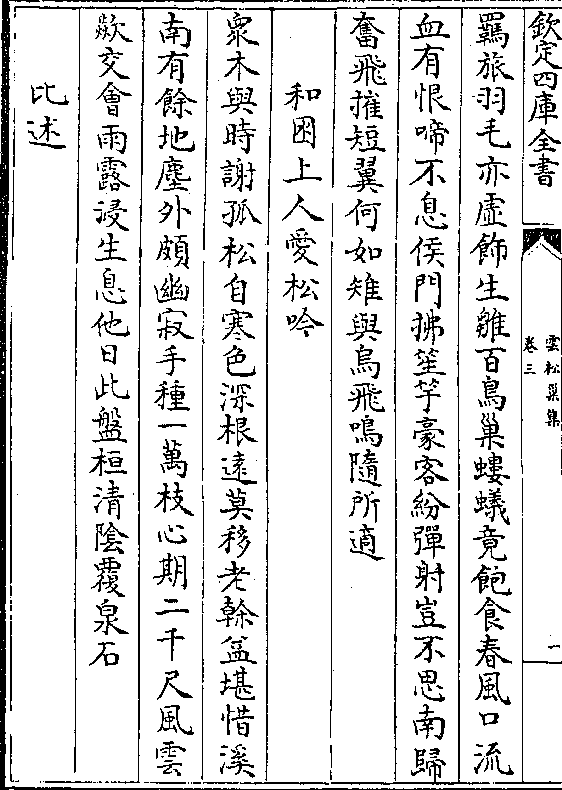 欽定四庫全書
雲松巢集
卷三
一
羈旅羽毛亦虛飾生雛百鳥巢螻蟻竟飽食春風口流
血有恨啼不息侯門拂笙竽豪客紛彈射豈不思南歸
奮飛摧短翼何如雉與烏飛鳴隨所適
和困上人愛松吟
衆木與時謝孤松自寒色深根遠莫移老榦益堪惜溪
南有餘地塵外頗幽寂手種一萬枝心期二千尺風雲
歘交會雨露浸生息他日此盤桓清陰覆泉石
比述